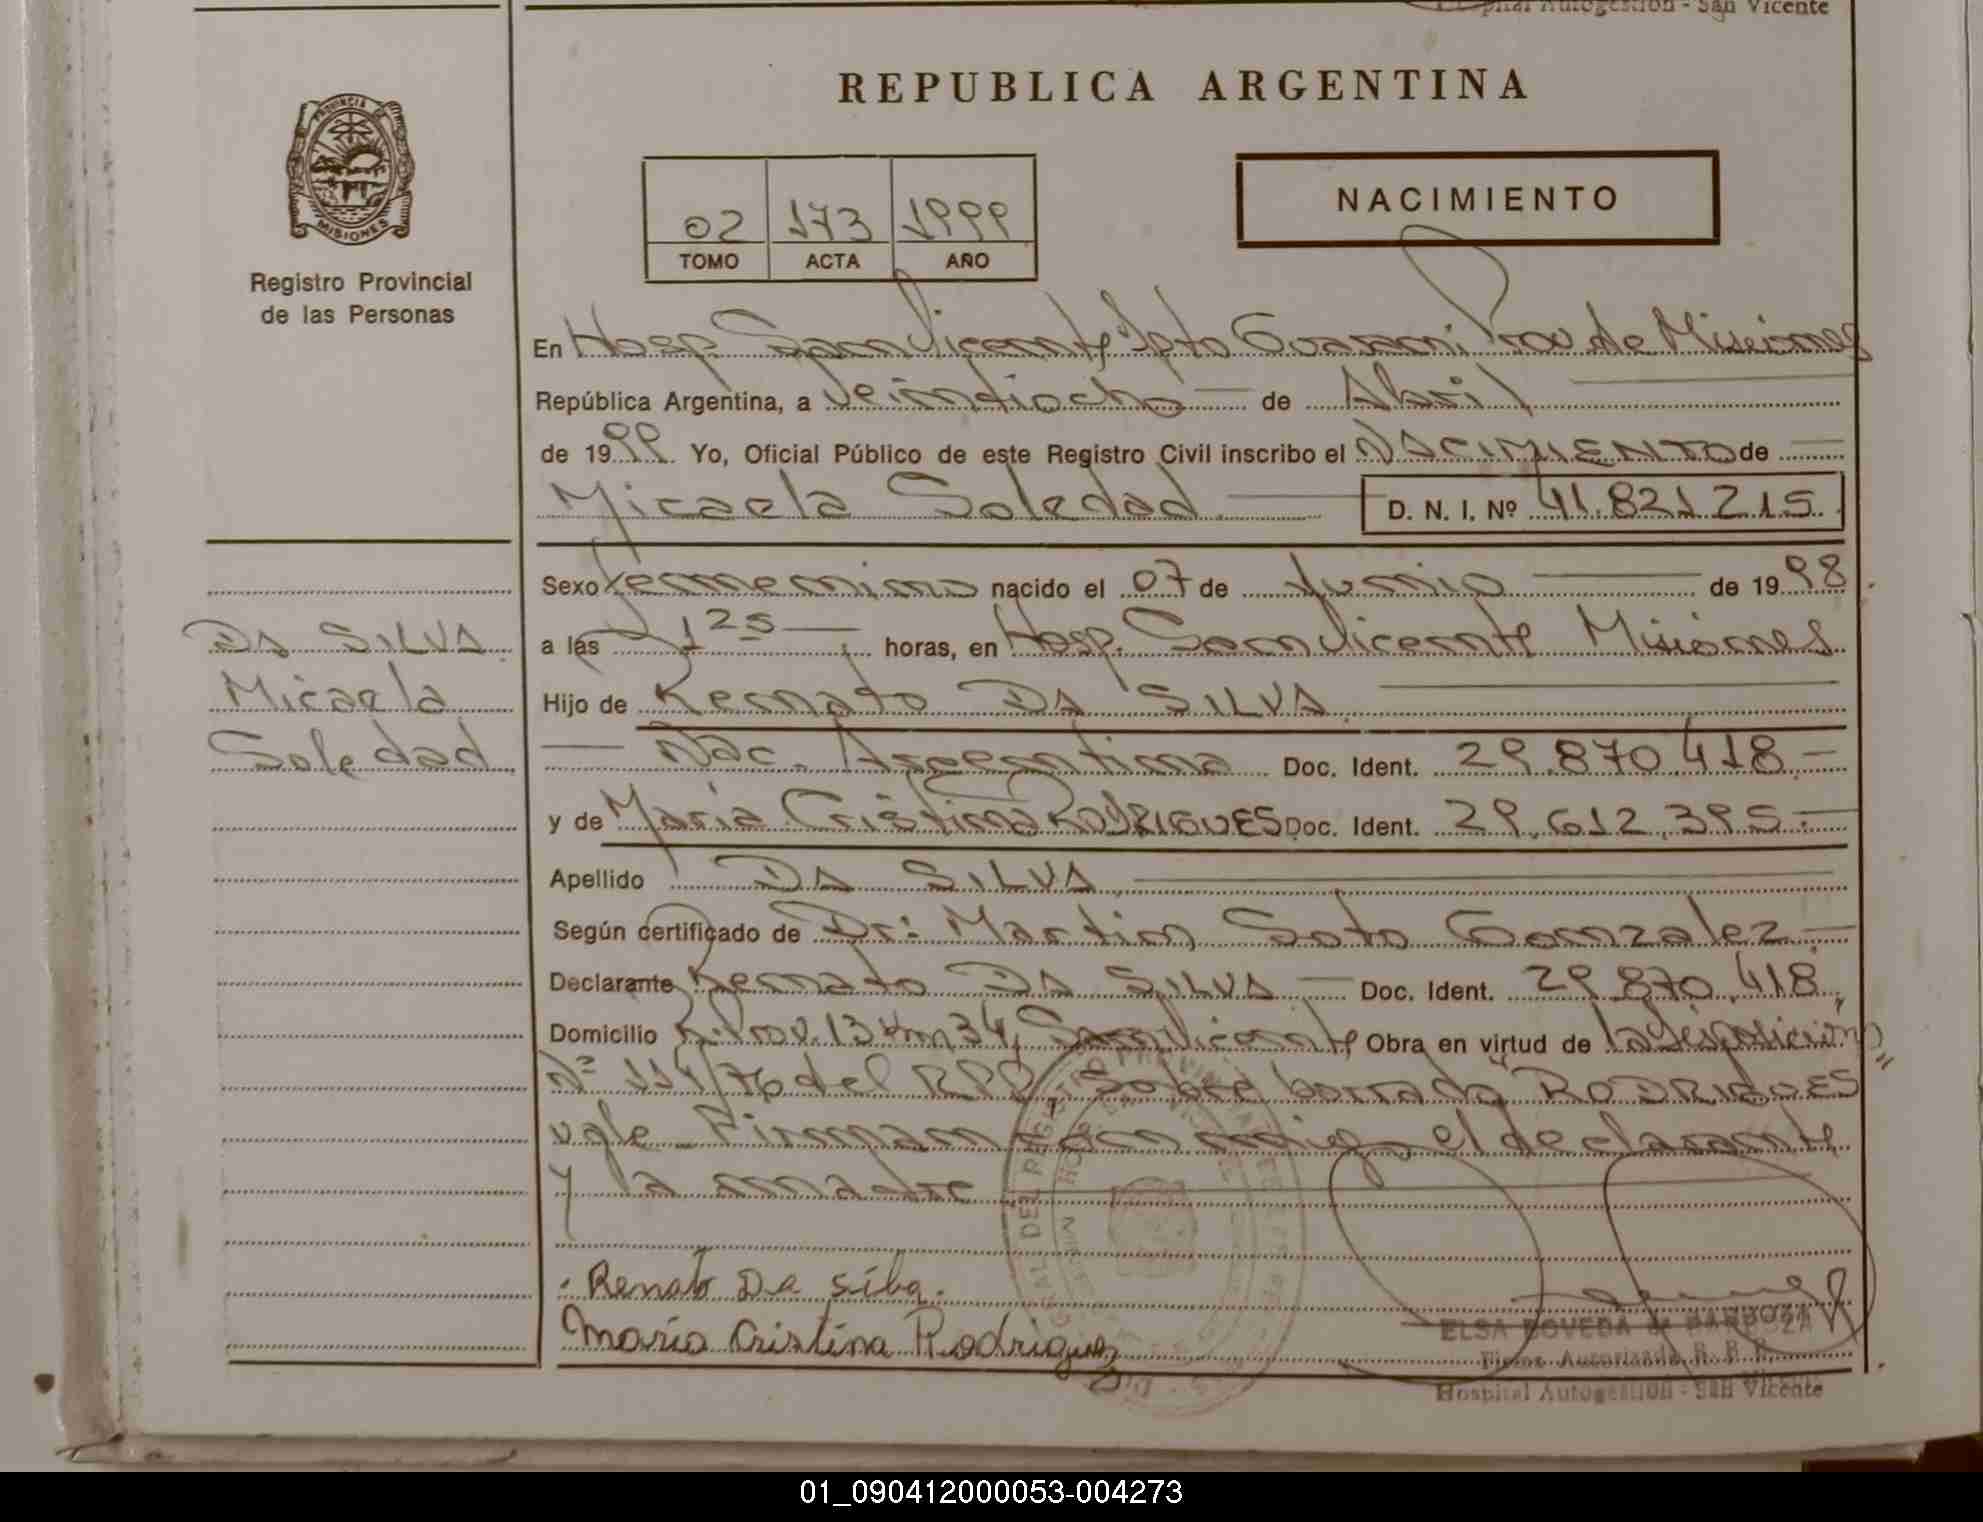 Hospital Autogestión - San Vicente
REPUBLICA ARGENTINA
PROVINCIA
MISIONES
Registro Provincial
de las Personas
02 173 1999
TOMO ACTA AÑO
NACIMIENTO
En Hosp. San Vicente Dpto Guarani Prov de Misiones
República Argentina, a veintiocho de Abril
de 1999 Yo, Oficial Público de este Registro Civil inscribo el NACIMIENTO de
Micaela Soledad D. N. I. Nº 41.821.215
Sexo femenino nacido el 07 de Junio de 1998
a las 1 25 horas, en Hosp. San Vicente Misiones
DA SILVA
Micaela
Soledad
Hijo de Renato DA SILVA
Nac. Argentina Doc. Ident. 29.870.418
y de Maria Cristina RODRIGUES Doc. Ident. 29.612.395
Apellido DA SILVA
Según certificado de Dr: Martin Soto Gonzalez
Declarante Renato DA SILVA Doc. Ident. 29.870.418
Domicilio R. Prov. 13 Km 34, San Vicente Obra en virtud de la Disposición
Nº 114/76 del RPP, Sobre borrado "RODRIGUES"
vale - Firman conmigo el declarante
y la madre
Renato Da silva.
Maria Cristina Rodriguez
ELSA BOVEDA de BARBOZA
Firma Autorizada R. P. P.
Hospital Autogestión - San Vicente
01_090412000053-004273